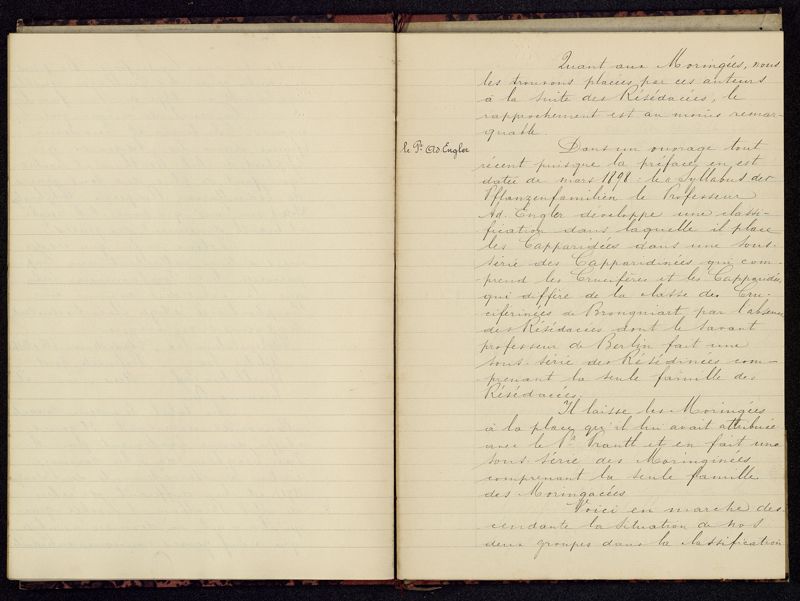 Quant aux Moringées, nous
les trouvons placées par ces auteurs
à la suite des Résédacées, le
rapprochement est au moins remar-
quable.
le Pr Ad Engler
Dans un ouvrage tout
récent puisque la préface en est
datée de mars 1898 : le Syllabus der
Pflanzenfamilien le Professeur
Ad. Engler développe une classi-
fication dans laquelle il place
les Capparidées dans une sous-
série des Capparidinées qui com-
prend les Crucifères et les Capparidées,
qui diffère de la classe des Cru-
ciférinées de Brongniart par l'absence
des Résédacées dont le savant
professeur de Berlin fait une
sous-série des Résédinées com-
prenant la seule famille des
Résédacées.
Il laisse les Moringées
à la place qu'il lui avait attribuée
avec le Pr Prantl et en fait une
sous-série des Moringinées
comprenant la seule famille
des Moringacées
Voici en marche des-
cendante la situation de nos
deux groupes dans la classification